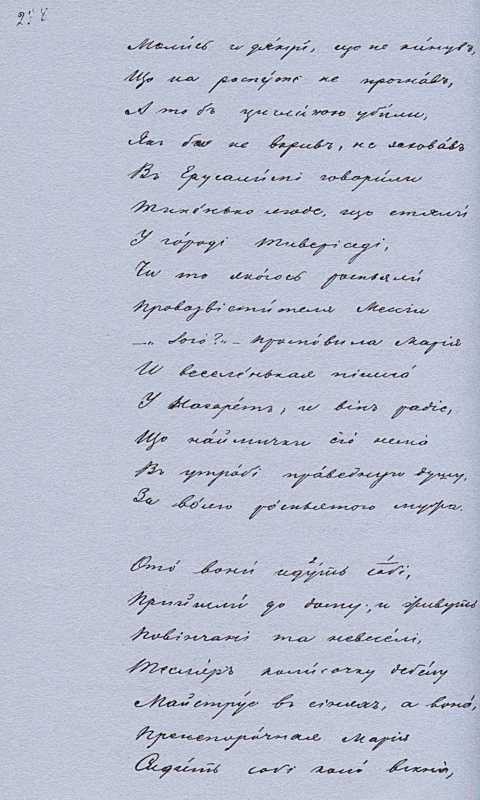 278
Молись и дякуй, що не кинувъ,
Що на распуття не прогнавъ,
А то бъ цеглиною убили,
Якъ бы не вкривъ, не заховавъ
Въ Ерусалимі говорили
Тихо́нько люде, що стяли́
У го́роді Тиверіяді,
Чи то яко́гось розпьяли́
Провозвісти́теля Мессіи
— „Його?“ — промо́вила Марія
И веселе́нькая пішла́
У Назаре́тъ, и вінъ радіє,
Що на́ймичка его́ несла́
Въ утро́бі пра́ведную душу,
За во́лю ро́спьятого мужа.
Ото́ вони́ иду́ть собі,
Прийшли́ до дому, и живу́ть
Повінчані та невеселі,
Тесля́ръ коли́сочку дебелу
Майстру́є въ сіняхъ, а вона́,
Пренепоро́чная Марія
Сиди́ть собі коло вікна,